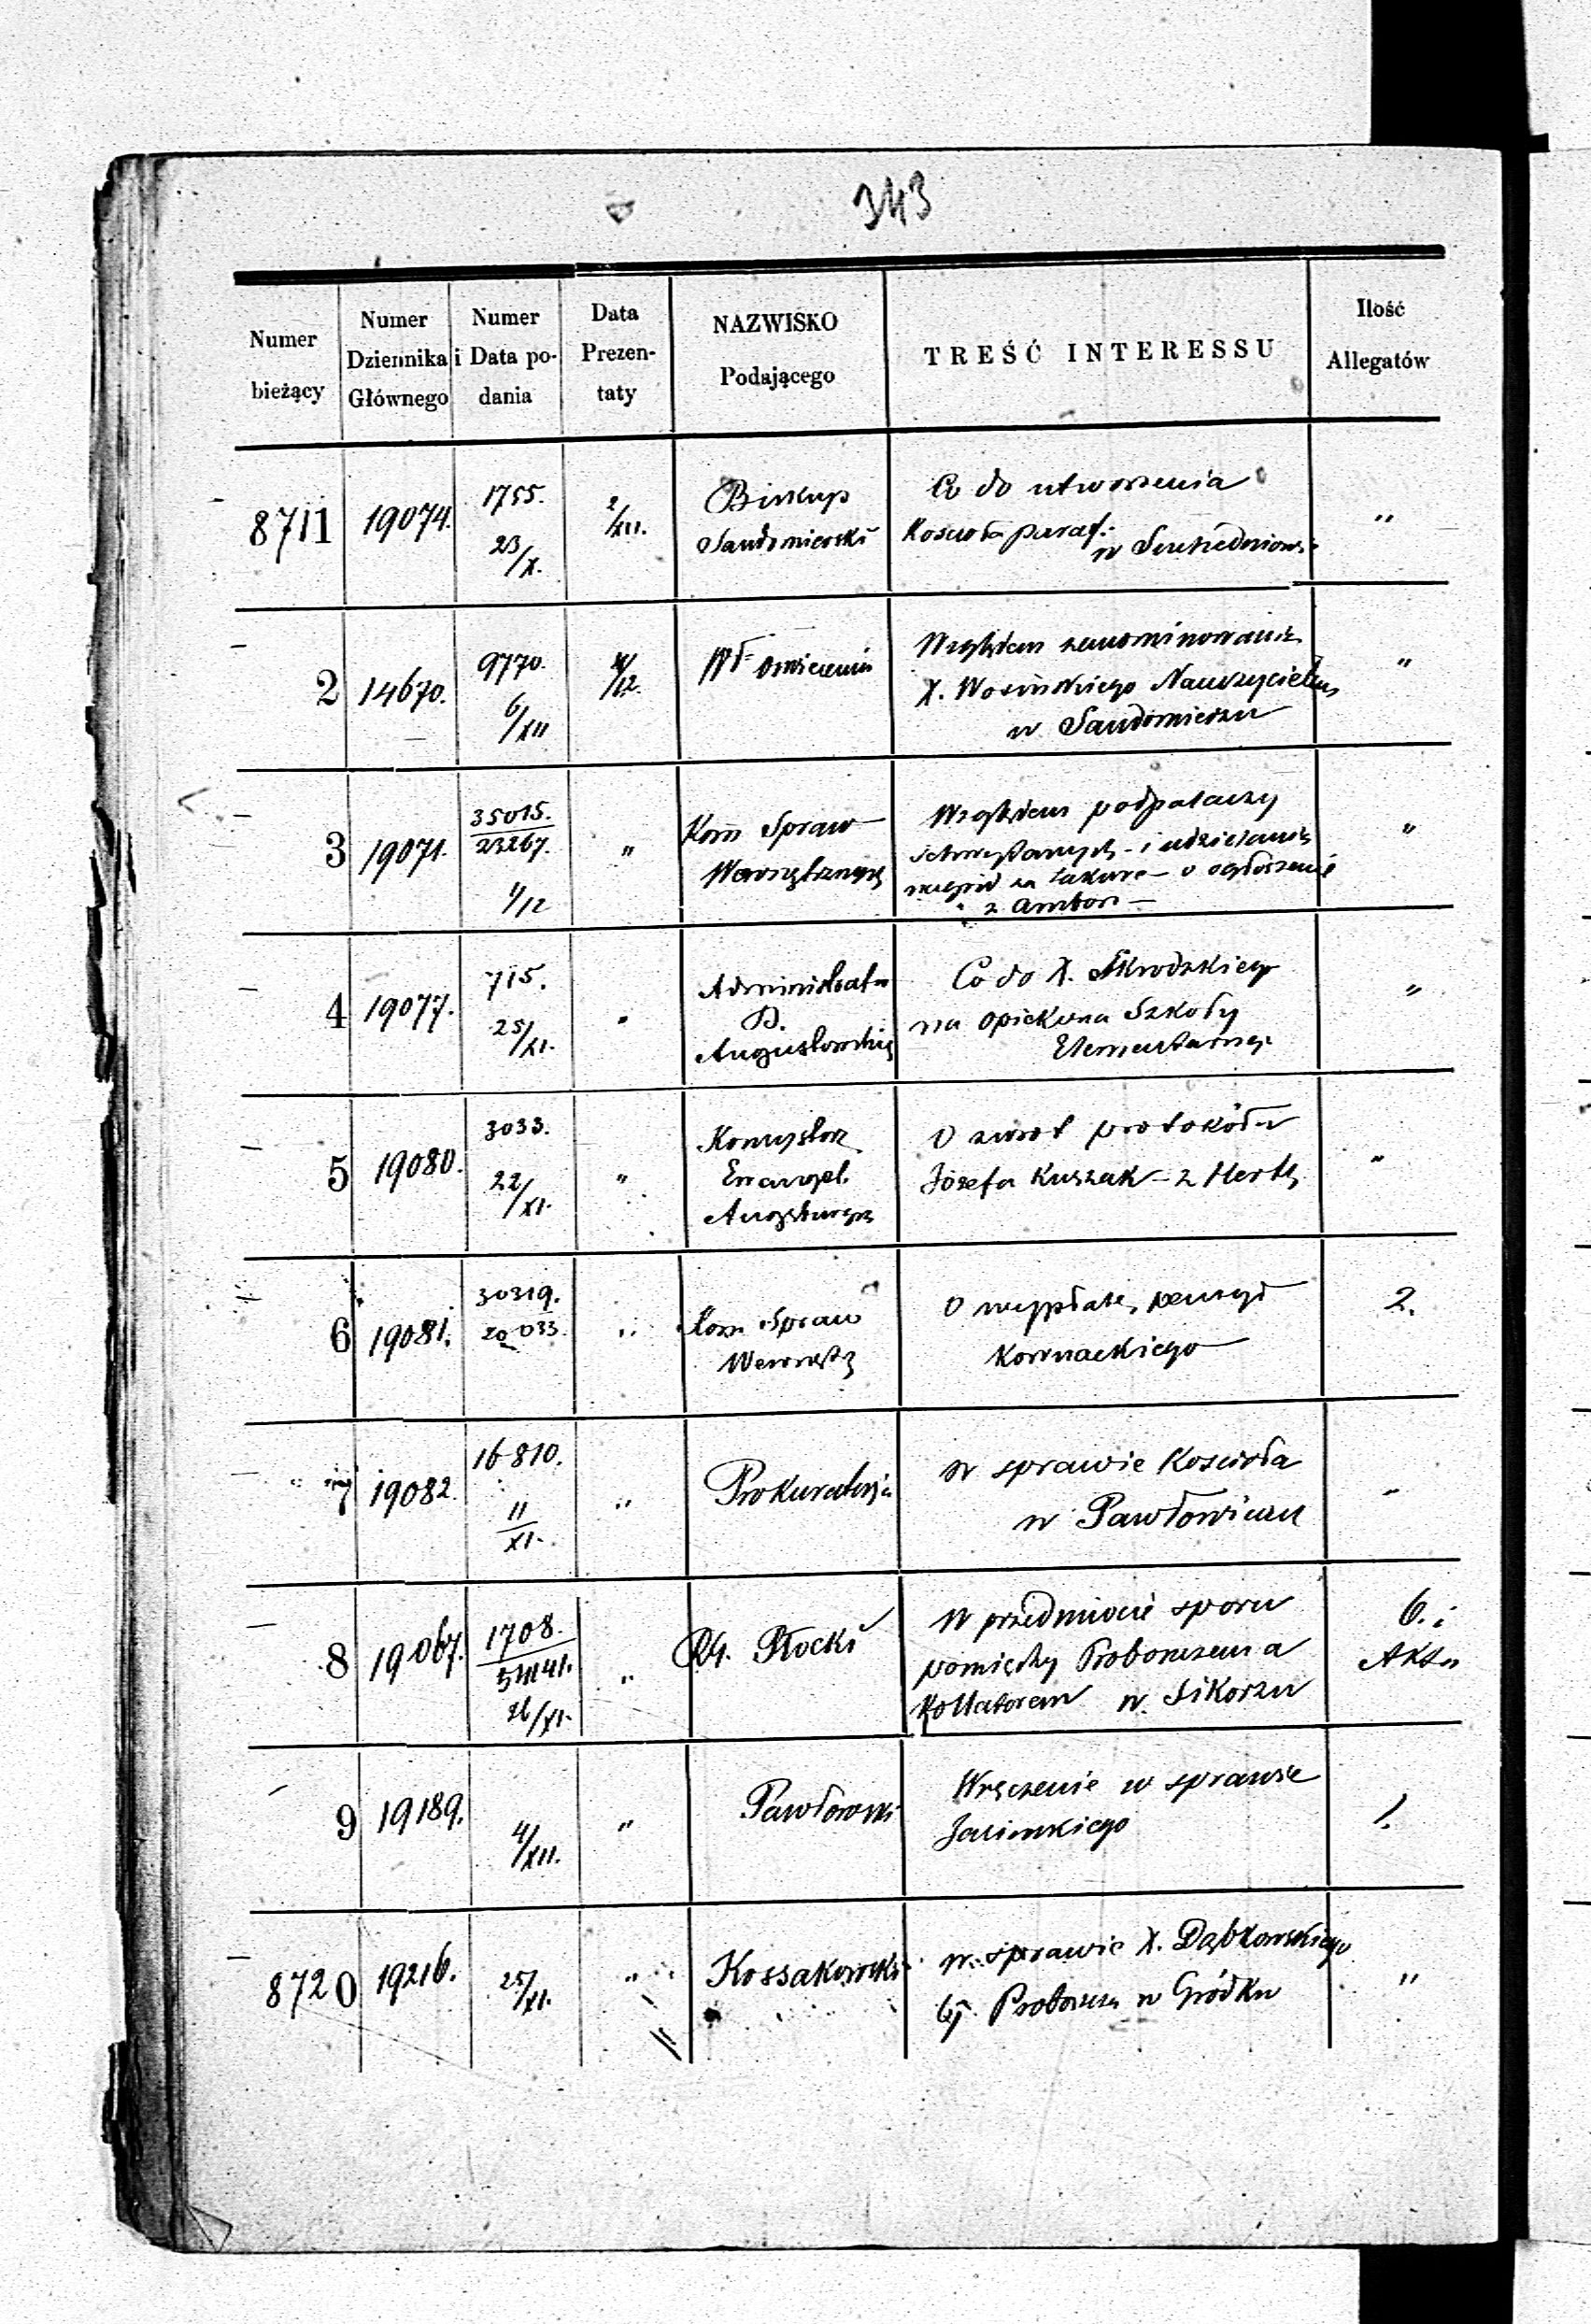 343
Numer bieżący
Numer Dziennika Głównego
Numer i Data podania
Data Prezentaty
NAZWISKO Podającego
TREŚĆ INTERESSU
Ilość Allegatów
8711 19074. 1755. 23/X. 2/XII. Biskup Sandomierski Co do utworzenia "
Kościoła paraf:
w Suchedniowie
2 14670. 9770. 6/XII 4/12. Wł Oświecenia Względem zanominowania "
X. Wosińskiego Nauczycielem
w Sandomierzu
3 19071. 35015. 23267. 1/12 " Kom Spraw Wewnętrznych Względem podpalaczy "
schwytanych i udzielania
za takowe o ogłoszenie
z ambon
4 19077. 715. 25/XI. " Administrator D. Augustowskiej Co do X. Skrodzkiego "
na opiekuna Szkoły
Elementarnej
5 19080. 3033. 22/XI. " Konsystorz Ewangel. Augsburgs O zwrot protokółu "
Józefa Kuszak z
6 19081. 30319. 20033. " Kom Spraw Wewnętz O wypłatę pensyi 2.
Kownackiego
7 19082. 16810. 11/XI. " Prokuratorja w sprawie Kościoła "
w Pawłowicach
8 19067. 1708. 26/XI. " RG. Płocki W przedmiocie sporu 6. i
pomiędzy Proboszczem a Akta
Kollatorem w Sikorzu
9 19189. 4/XII. " Pawłowski Wręczenie w sprawie 1.
Jasińskiego
8720 19216. 25/XI. " Kossakowski w sprawie X. Dąbkowskiego "
Proboszcza w Gródku